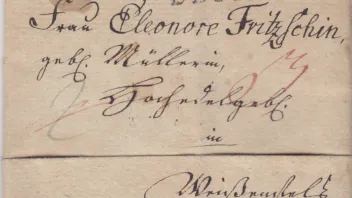 Frau Eleonore Fritzschin,
geb. Müllerin,
Hochedelgeb.
in
Weißenfels